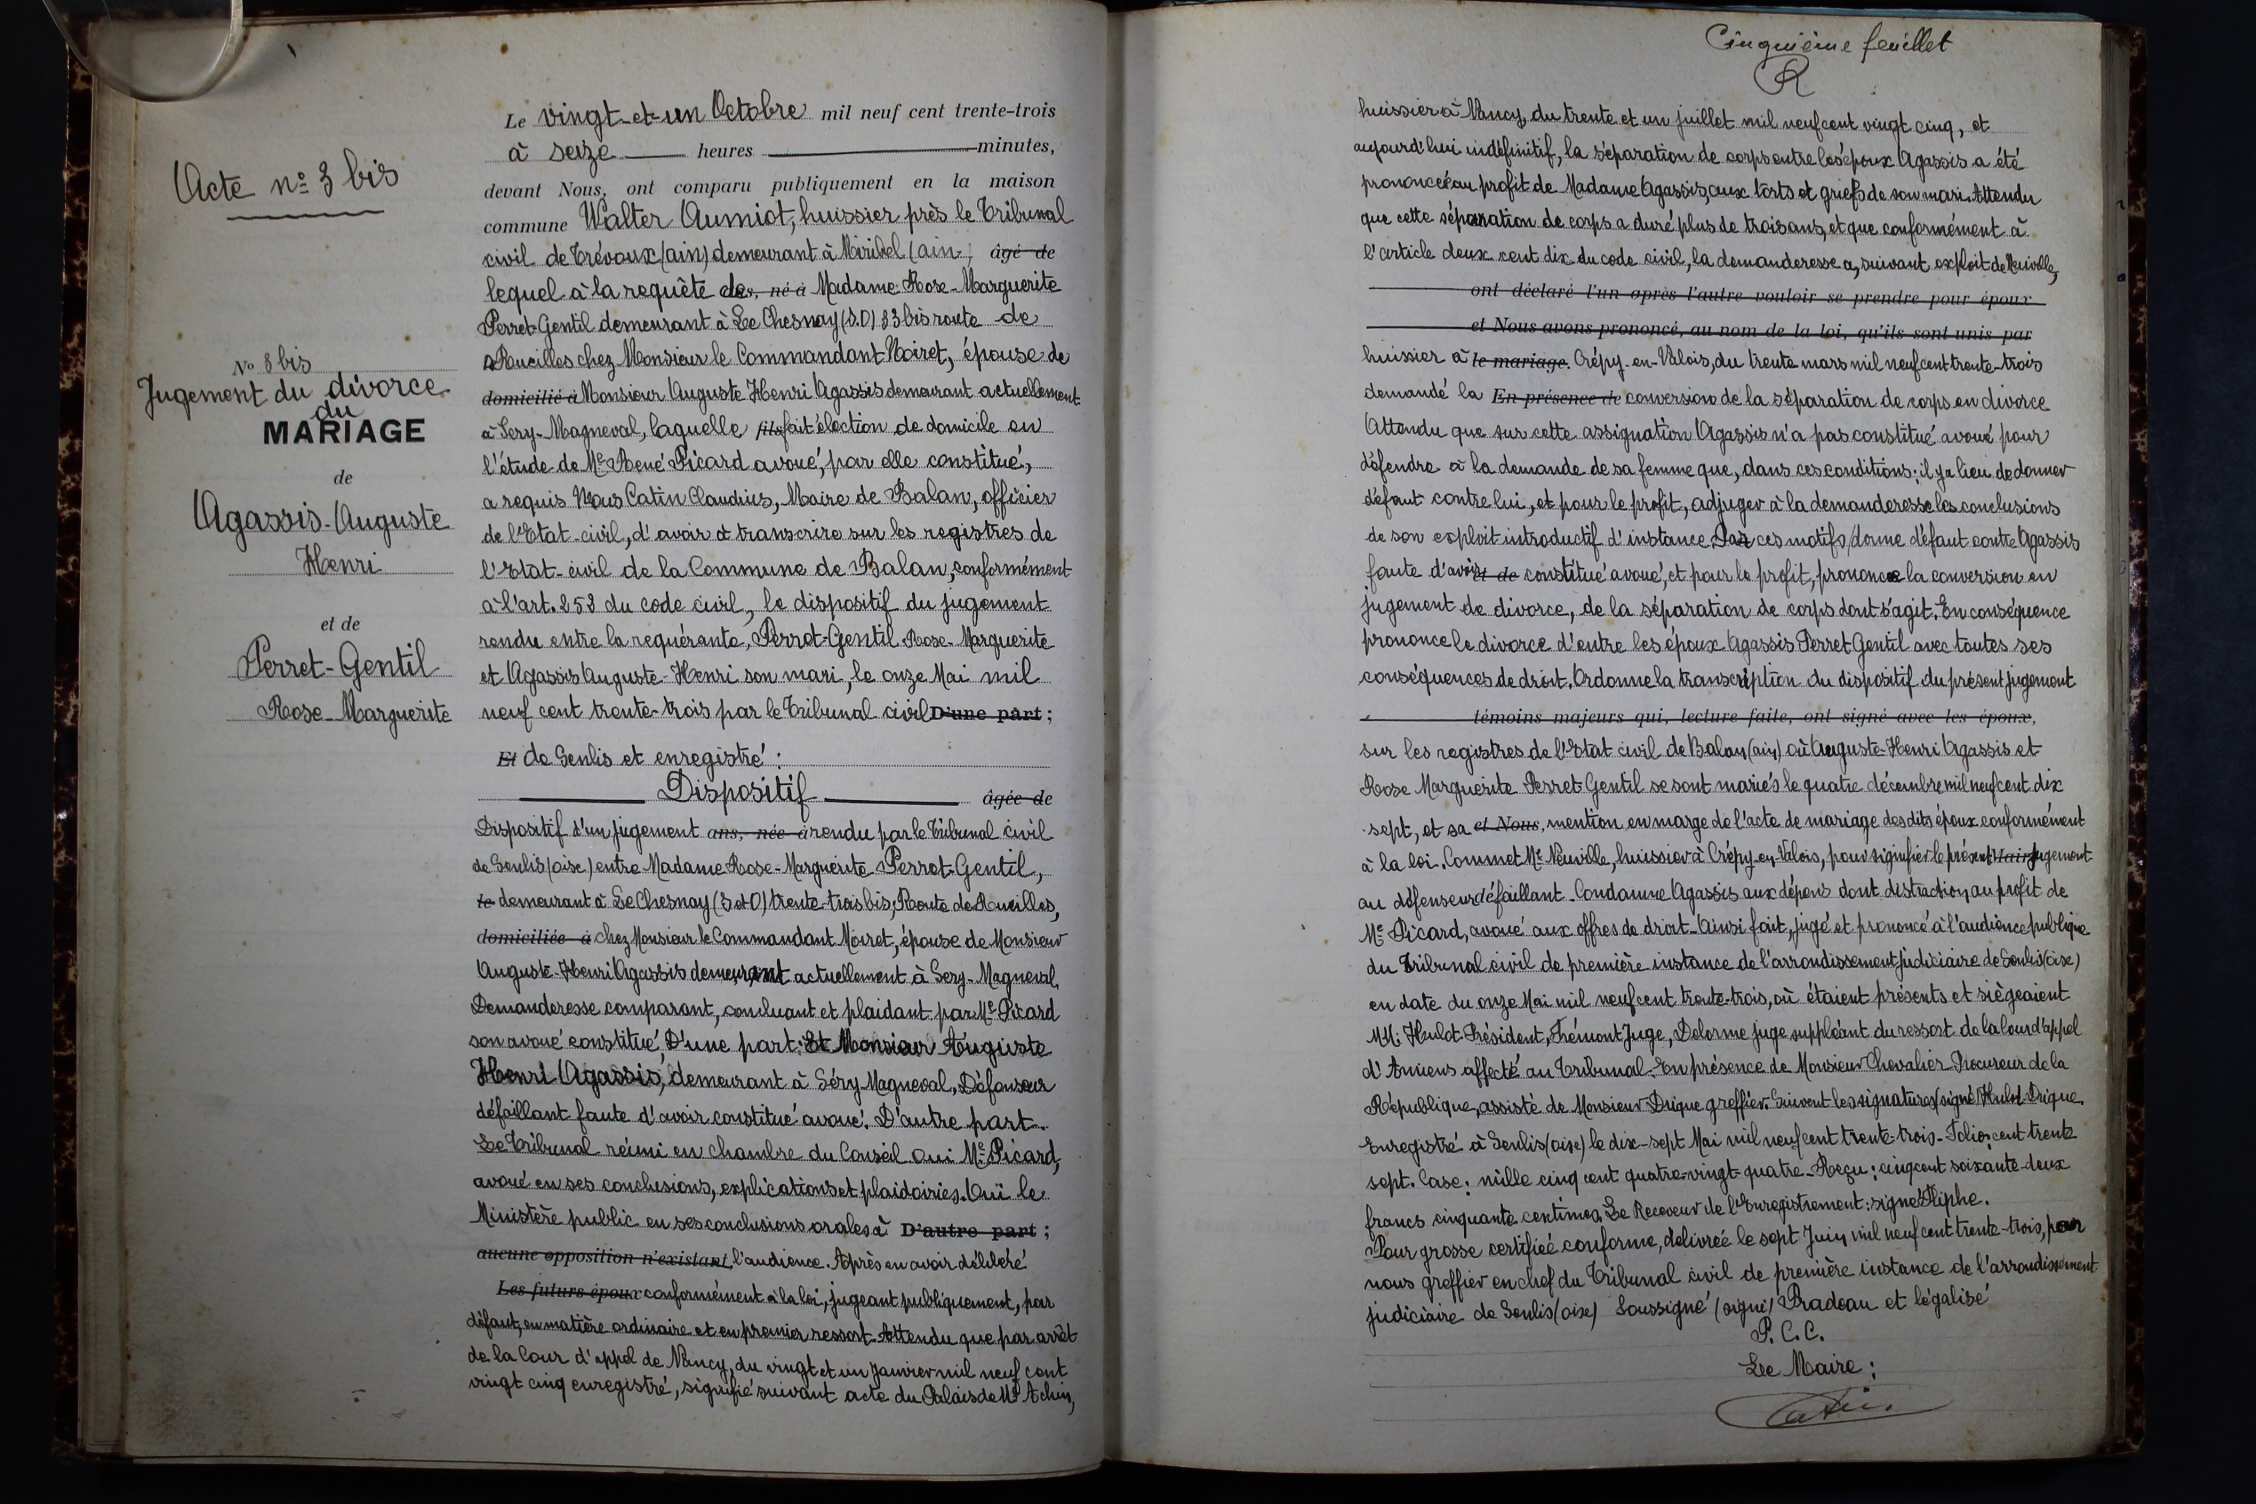 Acte n° 3 bis
N° 8 bis
Jugement du divorce
du
MARIAGE
de
Agassis-Auguste
Henri
et de
Perret-Gentil
Rose-Marguerite
Le vingt-et-un Octobre mil neuf cent trente-trois
à seize heures minutes,
devant Nous, ont comparu publiquement en la maison
commune Walter Aumiot, huissier près le Tribunal
civil de Trévoux (ain) demeurant à Miribel (ain) âgé de
lequel à la requête de s, né à Madame Rose-Marguerite
Perret-Gentil demeurant à Le Chesnay (S.O) 33 bis route de
Rueilles chez Monsieur le Commandant Noiret, épouse de
domicilié à Monsieur Auguste Henri Agassis demeurant actuellement
à Sery-Magneval, laquelle fils fait élection de domicile en
l'étude de Me René Picard avoué, par elle constitué,
a requis Nous Catin Claudius, Maire de Balan, officier
de l'Etat-civil, d'avoir à transcrire sur les registres de
l'Etat-civil de la Commune de Balan, conformément
à l'art. 252 du code civil, le dispositif du jugement
rendu entre la requérante, Perret-Gentil Rose-Marguerite
et Agassis Auguste-Henri son mari, le onze Mai mil
neuf cent trente-trois par le Tribunal civil D'une part ;
Et de Senlis et enregistré :
Dispositif âgée de
Dispositif d'un jugement ans, née à rendu par le Tribunal civil
de Senlis (oise) entre Madame Rose-Marguerite Perret-Gentil,
le demeurant à Le Chesnay (S et O) trente-trois bis, Route de Rueilles,
domiciliée à chez Monsieur le Commandant Noiret, épouse de Monsieur
Auguste-Henri Agassis demeurant actuellement à Sery-Magneval.
Demanderesse comparant, concluant et plaidant par Me Picard
son avoué constitué. D'une part : Et Monsieur Auguste
Henri Agassis, demeurant à Séry-Magneval, Défenseur
défaillant faute d'avoir constitué avoué. D'autre part.
Le Tribunal réuni en chambre du Conseil Oui Me Picard,
avoué en ses conclusions, explications et plaidoiries. Ouï le
Ministère public en ses conclusions orales à D'autre part ;
aucune opposition n'existant, l'audience. Après en avoir délibéré
Les futurs époux conformément à la loi, jugeant publiquement, par
défaut, en matière ordinaire et en premier ressort. Attendu que par arrêt
de la Cour d'appel de Nancy, du vingt et un Janvier mil neuf cent
vingt cinq enregistré, signifié suivant acte du Palais de Me Achin,
Cinquième feuillet
R
huissier à Nancy, du trente et un juillet mil neuf cent vingt cinq, et
aujourd'hui indéfinitif, la séparation de corps entre les époux Agassis a été
prononcée au profit de Madame Agassis, aux torts et griefs de son mari. Attendu
que cette séparation de corps a duré plus de trois ans, et que conformément à
l'article deux cent dix du code civil, la demanderesse a, suivant exploit de Neuville,
ont déclaré l'un après l'autre vouloir se prendre pour époux
et Nous avons prononcé, au nom de la loi, qu'ils sont unis par
huissier à le mariage. Crépy-en-Valois, du trente mars mil neuf cent trente-trois
demandé la En présence de conversion de la séparation de corps en divorce
Attendu que sur cette assignation Agassis n'a pas constitué avoué pour
défendre à la demande de sa femme que, dans ces conditions ; il y a lieu de donner
défaut contre lui, et pour le profit, adjuger à la demanderesse les conclusions
de son exploit introductif d'instance. Par ces motifs, donne défaut contre Agassis
faute d'avoir et de constitué avoué, et pour le profit, prononce la conversion en
jugement de divorce, de la séparation de corps dont s'agit. En conséquence
prononce le divorce d'entre les époux Agassis Perret Gentil avec toutes ses
conséquences de droit. Ordonne la transcription du dispositif du présent jugement
témoins majeurs qui, lecture faite, ont signé avec les époux,
sur les registres de l'Etat civil de Balan (ain) où Auguste-Henri Agassis et
Rose Marguerite Perret-Gentil se sont mariés le quatre décembre mil neuf cent dix
sept, et sa et Nous, mention en marge de l'acte de mariage des dits époux conformément
à la loi. Commet Me Neuville, huissier à Crépy-en-Valois, pour signifier le présent Maire jugement
au défenseur défaillant. Condamne Agassis aux dépens dont distraction au profit de
Me Picard, avoué aux offres de droit. Ainsi fait, jugé et prononcé à l'audience publique
du Tribunal civil de première instance de l'arrondissement judiciaire de Senlis (oise)
en date du onze Mai mil neuf cent trente-trois, où étaient présents et siègeaient
MM: Hulot Président, Frémont Juge, Delorme juge suppléant du ressort de la Cour d'appel
d'Amiens affecté au Tribunal. En présence de Monsieur Chevalier Procureur de la
République, assisté de Monsieur Drique greffier. Suivent les signatures (signé) Hulot Drique.
Enregistré à Senlis (oise) le dix-sept Mai mil neuf cent trente-trois. Folio : cent trente
sept. Case : mille cinq cent quatre-vingt-quatre. Reçu : cinq cent soixante-deux
francs cinquante centimes. Le Receveur de l'Enregistrement : signé Fliphe.
Pour grosse certifiée conforme, délivrée le sept Juin mil neuf cent trente-trois, par
nous greffier en chef du Tribunal civil de première instance de l'arrondissement
judiciaire de Senlis (oise) Soussigné (signé) Pradeau et légalisé
P. C. C.
Le Maire :
Catin.